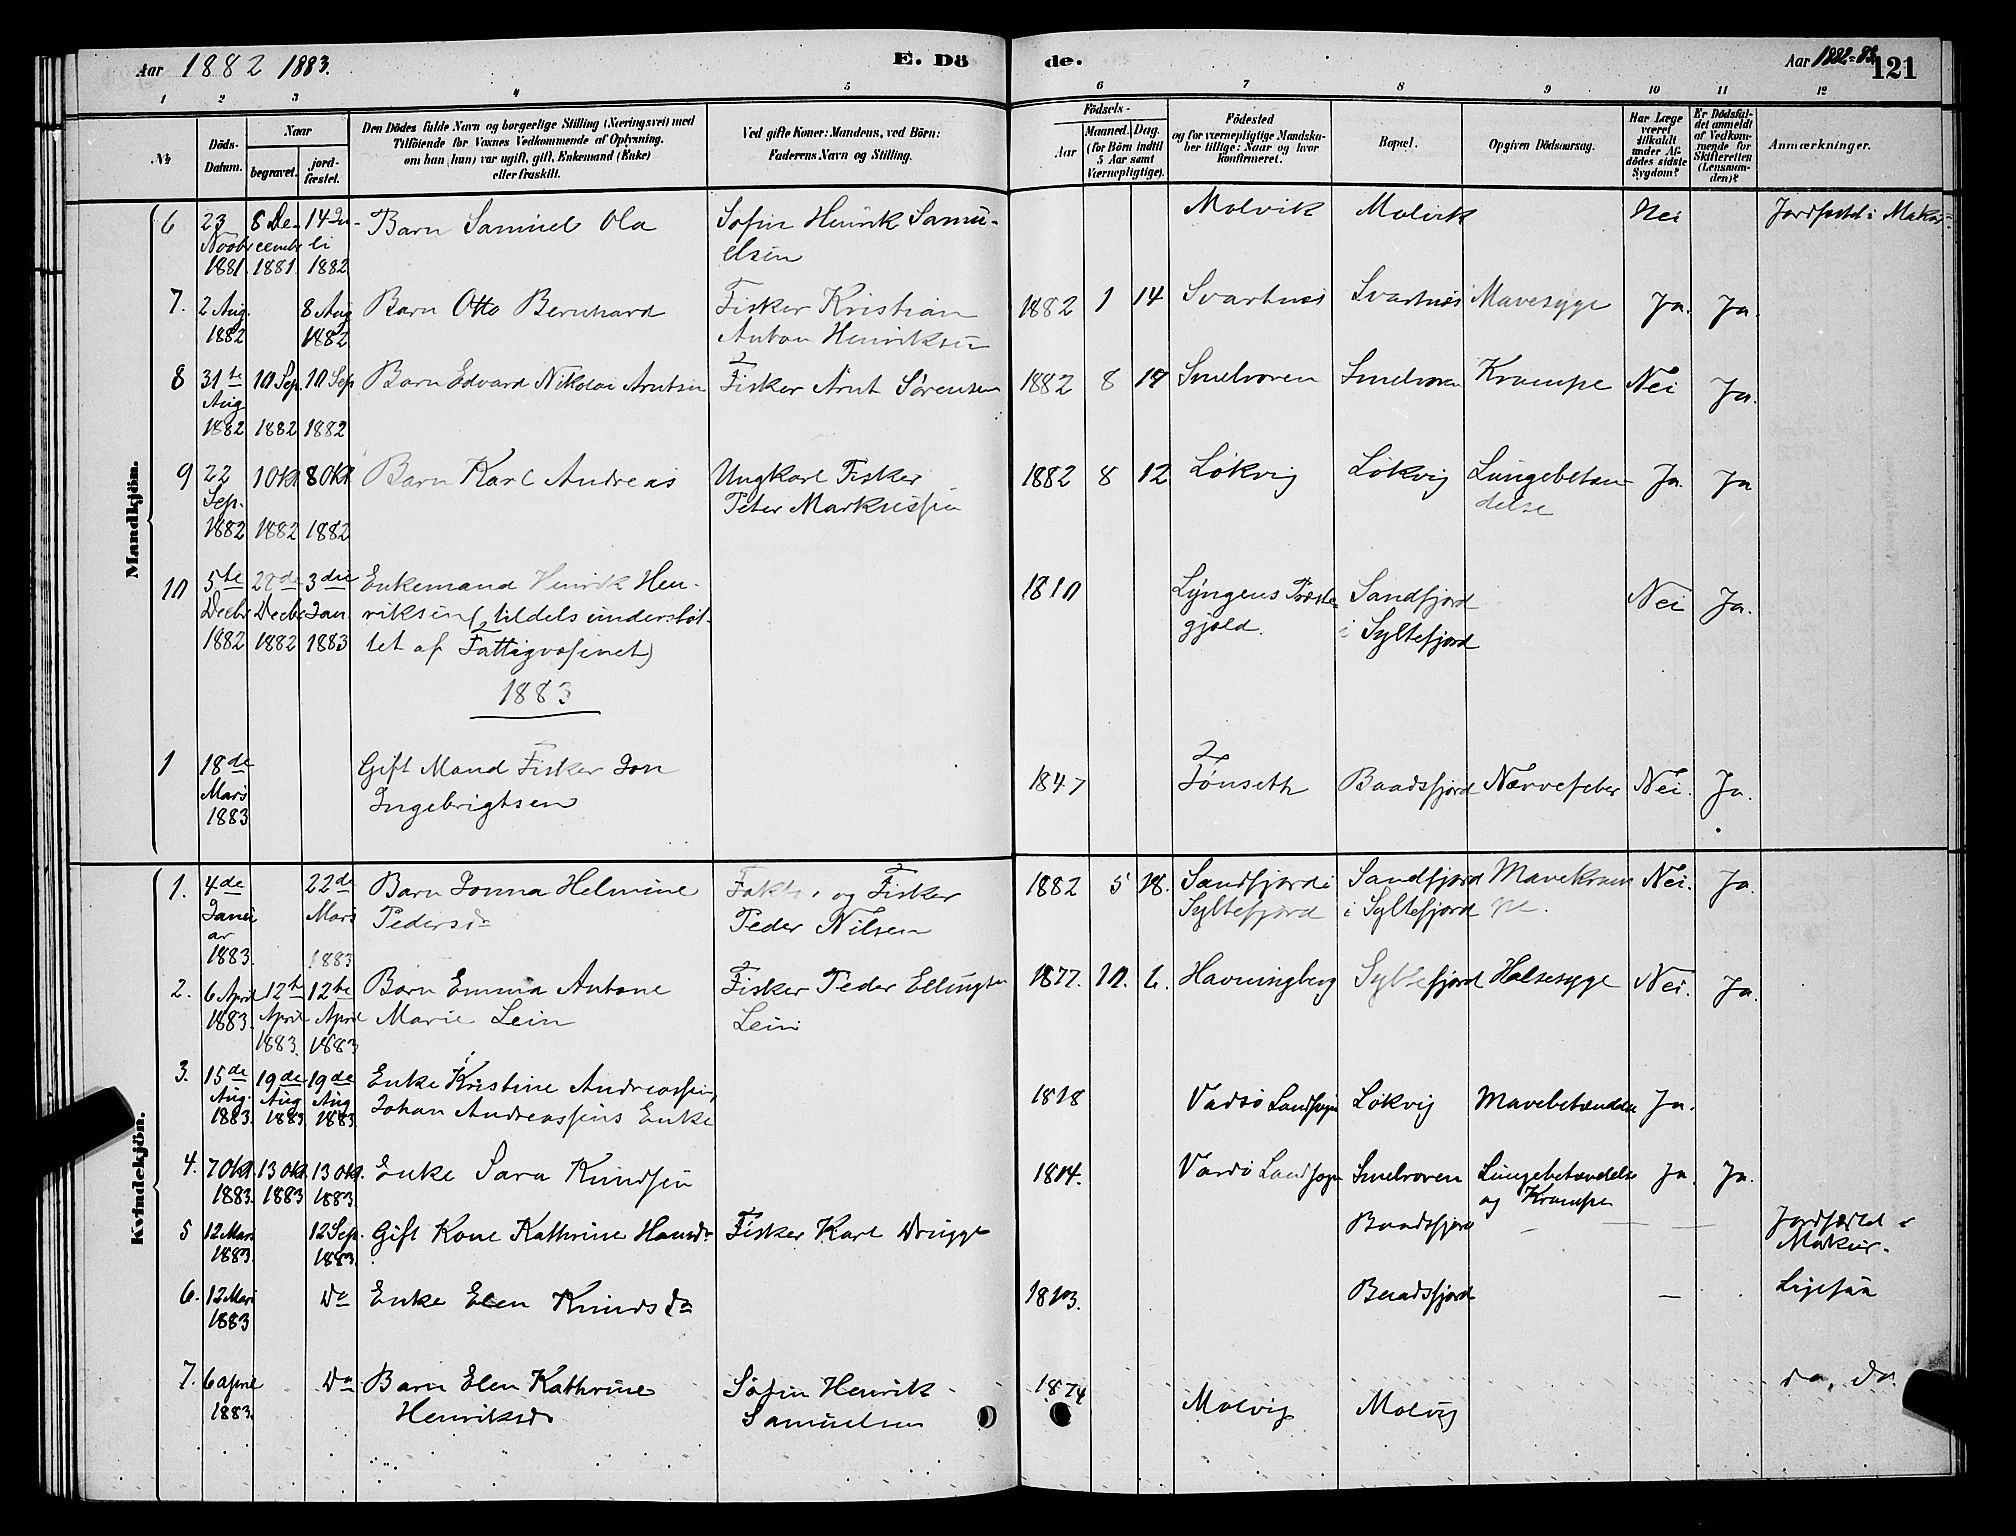 Aar 1882 1883. E. Dö
de. Aar 1882-83. 121
1 2 3 4 5 6 7 8 9 10 11 12
No
Döds-
Datum.
Naar
begravet.
jord-
fæstet.
Den Dödes fulde Navn og borgerlige Stilling (Næringsvei) med
Tilföiende for Voxnes Vedkommende af Oplysning,
om han (hun) var ugift, gift, Enkemand (Enke)
eller fraskilt.
Ved gifte Koner: Mandens, ved Börn:
Faderens Navn og Stilling.
Födsels-
Aar
Maaned. Dag.
(for Börn indtil
5 Aar samt
Værnepligtige).
Födested
og for værnepligtige Mandska-
ber tillige: Naar og hvor
konfirmeret.
Bopæl.
Opgiven Dödsaarsag.
Har Læge
været
tilkaldt
under Af-
dödes sidste
Sygdom?
Er Dödsfal-
det anmeldt
af Vedkom-
mende for
Skifteretten
(Lensman-
den)?
Anmærkninger.
Mandkjön.
6 23 8 De- 14 Ju- Barn Samuel Ola Sofin Henrik Samu- Molvik Molvik Nei Jordfæstet i Makur.
Novbr cembr li elsen
1881. 1881. 1882
7. 2 Aug. 8 Aug Barn Otto Bernhard Fisker Kristian 1882 1 14 Svartnæs Svartnæs Mavesyge Ja. Ja.
1882 1882 Anton Henriksen
8 31te 10 Sep. 10 Sep Barn Edvard Nikolai Arntsen Fisker Arnt Sørensen 1882 8 19 Smelroren Smelroren Krampe Nei Ja.
Aug
1882 1882 1882
9 22 1 Okt 8 Okt Barn Karl Andreas Ungkarl Fisker 1882 8 12 Løkvig Løkvig Lungebetæn- Ja. Ja
Sep. Peter Markussen delse
1882 1882 1882
10 5te 28de 3die Enkemand Henrik Hen- 1810 Lyngens Præste- Sandfjord Nei Ja.
Decbr Decbr Jan riksen (tildels understøt- gjeld. i Syltefjord
1882 1882 1883 tet af Fattigvæsenet)
1883
1 18de Gift Mand Fisker Jon 1847 Tønseth Baadsfjord Nervefeber Nei. Ja.
Mars Ingebrigtsen
1883
Kvindekjön.
1. 4de 22de Barn Jonna Helmine og Fisker 1882 5 18. Sandfjord i Sandfjord Mavekram Nei. Ja.
Janu Mars Pedersd. Peder Nilsen Syltefjord i Syltefjord pe.
ar
1883. 1883
2. 6 April 12te 12te Barn Emma Antone Fisker Peder Ellingsen 1877. 10. 6. Havningberg Syltefjord Halsesyge Nei. Ja.
1883. April April Marie Lein Lein
1883. 1883
3. 15de 19de 19de Enke Kristine Andreassen, 1818 Vadsø Landsogn Løkvig Mavebetændelse Ja.
Aug. Aug Aug Johan Andreassens Enke
1883. 1883 1883.
4. 7 Okt. 13 Okt. 13 Okt. Enke Sara Knudsen 1804. Vardø Landsogn Smelroren Lungebetændelse Ja. Ja.
1883. 1883 1883. og Krampe
5 12 Mars 12 Sep. Gift Kone Kathrine Hansdr Fisker Karl Drigge Baadsfjord — — — Jordfæstet i
1883. 1883. Makur.
6. 12 Mars Do Enke Elen Knudsdr 1803. Baadsfjord — Ligesaa
1883
7. 6 April Do Barn Elen Kathrine Søfin Henrik 1874 Molvig Molvig do. do.
1883. Henriksdr Samuelsen